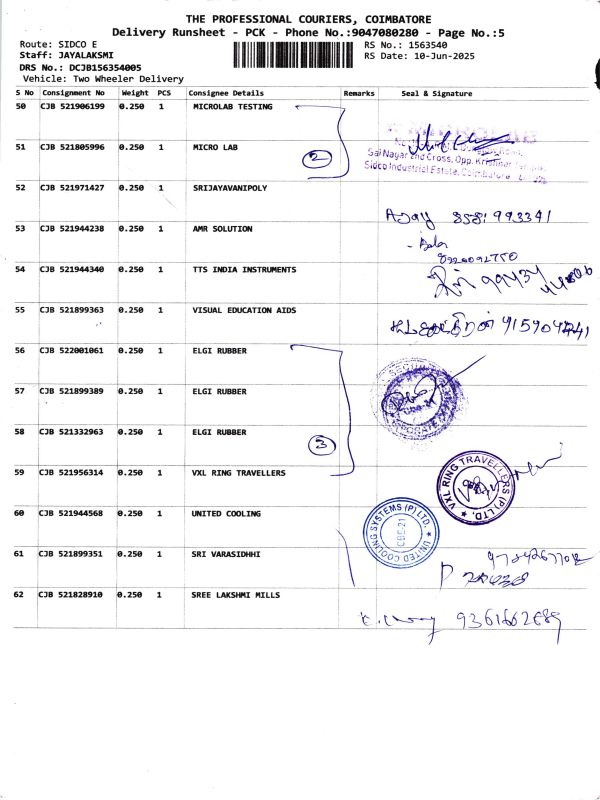 THE PROFESSIONAL COURIERS, COIMBATORE
Delivery Runsheet - PCK - Phone No.:9047080280 - Page No.:5
Route: SIDCO E
RS No.: 1563540
Staff: JAYALAKSMI
RS Date: 10-Jun-2025
DRS No.: DCJB156354005
Vehicle: Two Wheeler Delivery
S No Consignment No Weight PCS Consignee Details Remarks Seal & Signature
50 CJB 521906199 0.250 1 MICROLAB TESTING
51 CJB 521805996 0.250 1 MICRO LAB
2
Sai Nagar 2nd Cross, Opp. Krishna
Sidco Industrial Estate, Coimbatore
52 CJB 521971427 0.250 1 SRIJAYAVANIPOLY
Ajay 8581993341
53 CJB 521944238 0.250 1 AMR SOLUTION
54 CJB 521944340 0.250 1 TTS INDIA INSTRUMENTS
99434
55 CJB 521899363 0.250 1 VISUAL EDUCATION AIDS
56 CJB 522001061 0.250 1 ELGI RUBBER
57 CJB 521899389 0.250 1 ELGI RUBBER
58 CJB 521332963 0.250 1 ELGI RUBBER
3
59 CJB 521956314 0.250 1 VXL RING TRAVELLERS
VXL RING TRAVELLERS (P) LTD.
60 CJB 521944568 0.250 1 UNITED COOLING
UNITED COOLING SYSTEMS (P) LTD.
CBE-21
61 CJB 521899351 0.250 1 SRI VARASIDHHI
62 CJB 521828910 0.250 1 SREE LAKSHMI MILLS
9361662689